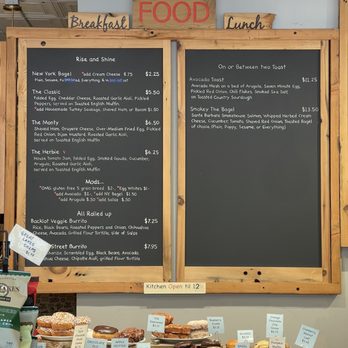 FOOD
Breakfast
Lunch
Rise and Shine
New York Bagel *add Cream Cheese $.75 $2.25
The Classic $5.50
Folded Egg, Cheddar Cheese, Roasted Garlic Aioli, Pickled
Peppers, served on Toasted English Muffin
*add Housemade Turkey Sausage, Shaved Ham or Bacon $1.50
The Monty $6.50
Shaved Ham, Gruyere Cheese, Over Medium Fried Egg, Pickled
Red Onion, Dijon Mustard, Roasted Garlic Aioli,
served on Toasted English Muffin
The Herbie $6.25
House Tomato Jam, Folded Egg, Smoked Gouda, Cucumber,
Arugula, Roasted Garlic Aioli,
served on Toasted English Muffin
Mods...
*OMG gluten free 5 grain bread $2- *Egg Whites $1-
*add Avocado $2- *add NY Bagel $1.50
*add Arugula $.50 *add Salsa $.50
All Rolled up
Backlot Veggie Burrito $7.25
Rice, Black Beans, Roasted Peppers and Onion, Chihuahua
Cheese, Avocado, Grilled Flour Tortilla, Side of Salsa
Street Burrito $7.95
Scrambled Egg, Black Beans, Avocado,
Cheese, Chipotle Aioli, grilled Flour Tortilla
On or Between two Toast
Avocado Toast $11.25
Avocado Mash on a bed of Arugula, Seven Minute Egg,
Pickled Red Onion, Chili Flakes, Smoked Sea Salt
on Toasted Country Sourdough
Smokey The Bagel $13.50
Santa Barbara Smokehouse Salmon, Whipped Herbed Cream
Cheese, Cucumber, Tomato, Shaved Red Onion, Toasted Bagel
of choice (Plain, Poppy, Sesame, or Everything)
Kitchen Open til 12